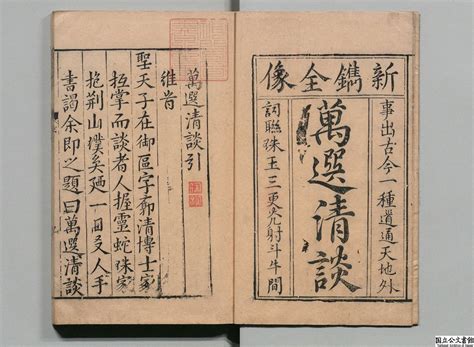 新鐫全像
事出古今一種道通天地外
萬選清談
詞聯珠玉三更光射斗牛間
萬選清談引
維昔
聖天子在御區宇廓清博士家
抵掌而談者人握靈蛇珠家
抱荆山璞矣廼一日友人手
書謁余即之題曰萬選清談
国立公文書館
National Archives of Japan